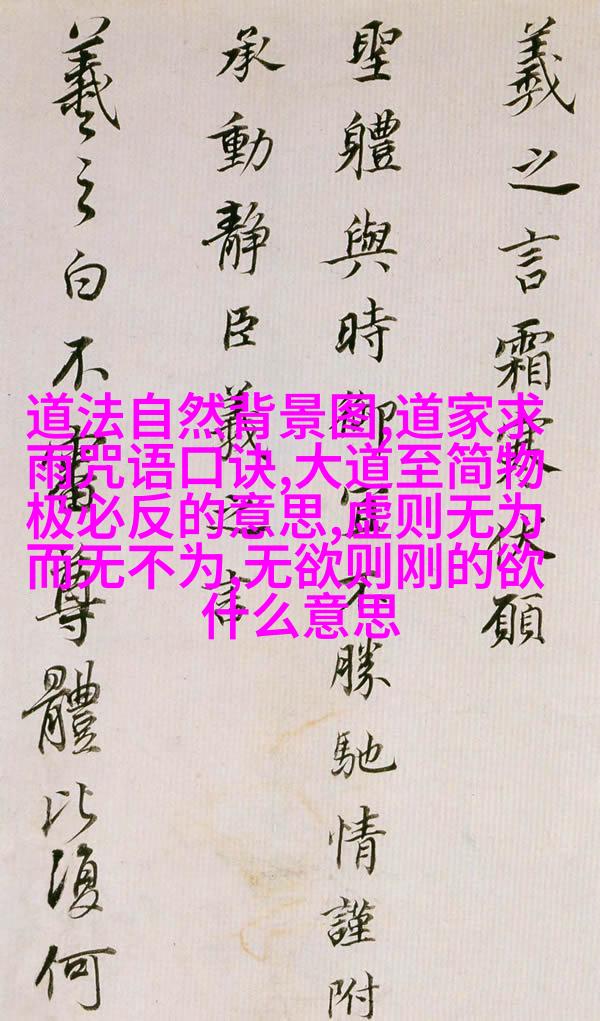 羲之言霜寒伏願
聖體與時御宜不勝馳情謹附
承動靜臣羲之言
羲之白不審尊體比復何
道法自然背景图,道家求
雨咒语口诀,大道至简物
极必反的意思,虚则无为
而无不为,无欲则刚的欲
什么意思